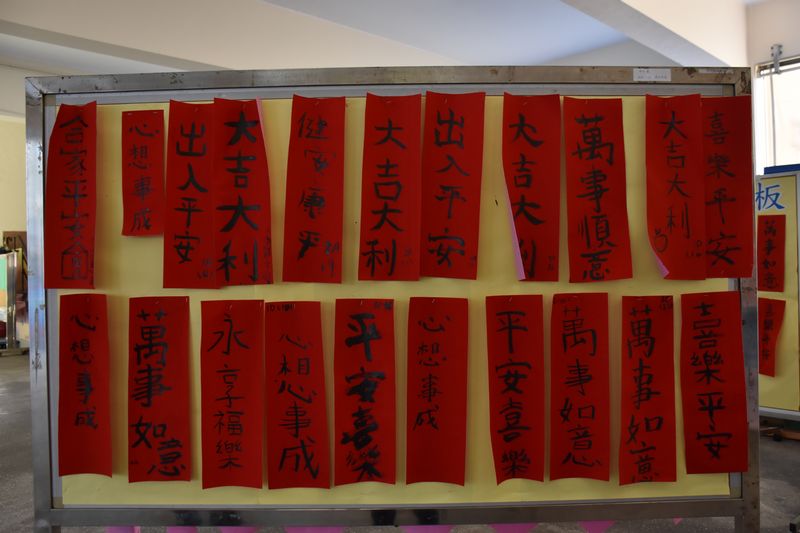 合家平安
心想事成
出入平安
大吉大利
健安康平
大吉大利
出入平安
大吉大利
萬事順意
大吉大利
喜樂平安
板
萬事如意
心想事成
萬事如意
永享福樂
心想事成
平安喜樂
心想事成
平安喜樂
萬事如意
萬事如意
喜樂平安